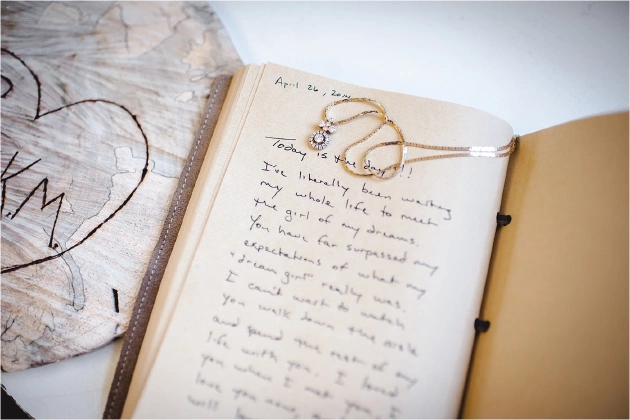 K.M.
April 26, 2014
Today is the day!!
I've literally been waiting
my whole life to meet
the girl of my dreams.
You have far surpassed my
expectations of what my
"dream girl" really was.
I can't wait to watch
you walk down the aisle
and spend the rest of my
life with you. I loved
you when I met you, I
love you now, I
will